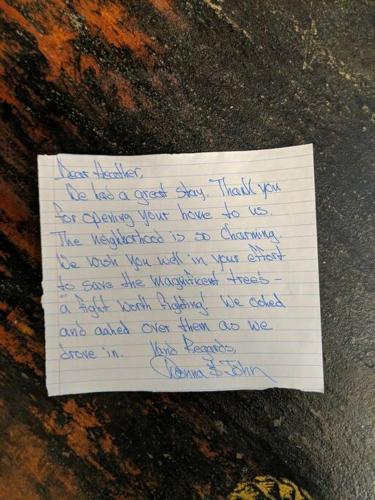 Dear Heather,
We had a great stay. Thank you
for opening your home to us.
The neighborhood is so charming.
We wish you well in your effort
to save the magnificent trees -
a fight worth fighting! We oohed
and aahed over them as we
drove in. Kind Regards,
Donna & John